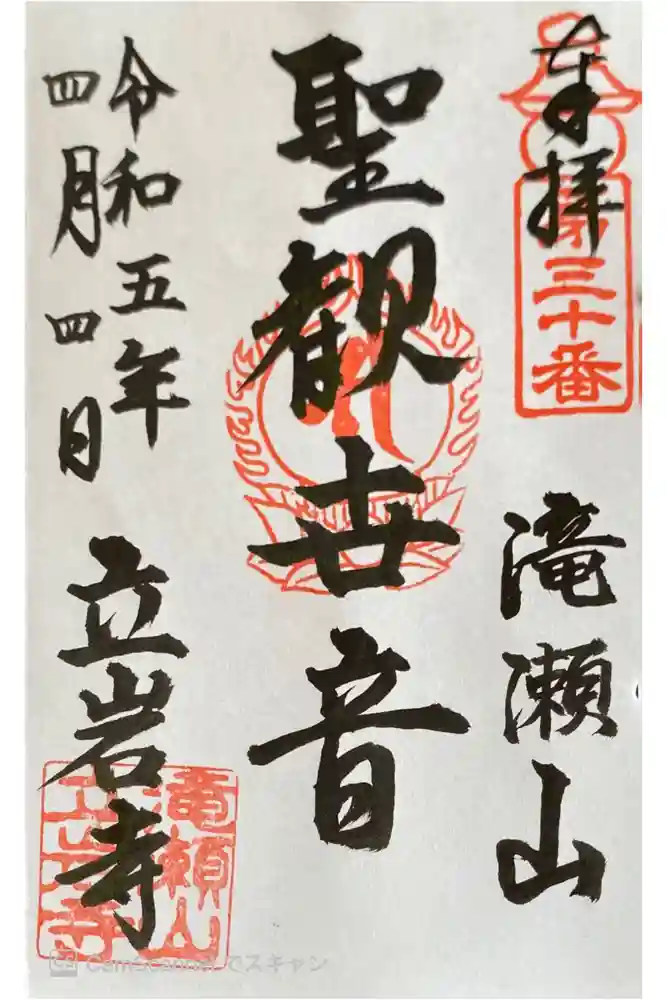 奉拝
第三十番
滝瀬山
聖観世音
令和五年
四月四日
立岩寺
滝瀬山
立岩寺
CamScanner でスキャン